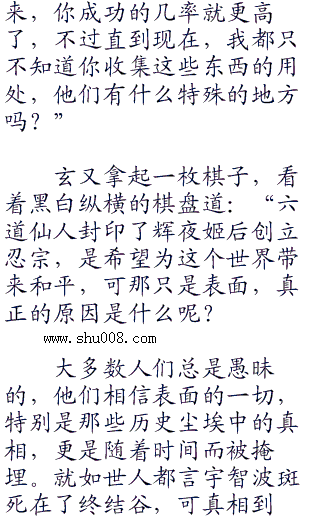 来，你成功的几率就更高
了，不过直到现在，我都只
不知道你收集这些东西的用
处，他们有什么特殊的地方
吗？”
玄又拿起一枚棋子，看
着黑白纵横的棋盘道：“六
道仙人封印了辉夜姬后创立
忍宗，是希望为这个世界带
来和平，可那只是表面，真
正的原因是什么呢？
www.shu008.com
大多数人们总是愚昧
的，他们相信表面的一切，
特别是那些历史尘埃中的真
相，更是随着时间而被掩
埋。就如世人都言宇智波斑
死在了终结谷，可真相到